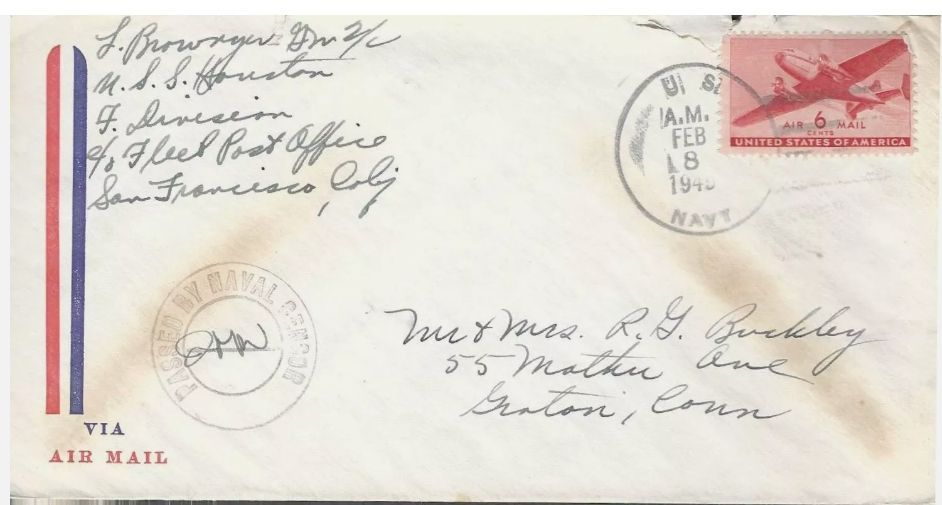 L. Brownyer Gm 2/c
U.S.S. Houston
F. Division
c/o Fleet Post Office
San Francisco, Calif
U. S.
A.M.
FEB
8
194
NAVY
AIR 6 MAIL
CENTS
UNITED STATES OF AMERICA
PASSED BY NAVAL CENSOR
Mr & Mrs. R. G. Buckley
55 Mather Ave
Groton, Conn
VIA
AIR MAIL